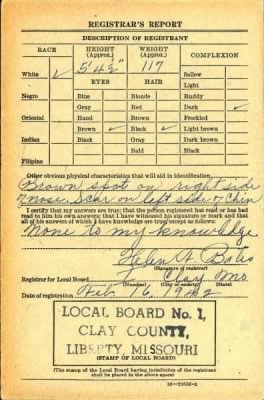 REGISTRAR'S REPORT
DESCRIPTION OF REGISTRANT
RACE HEIGHT (Approx.) WEIGHT (Approx.) COMPLEXION
White ✓ 5' 4½" 117 Sallow
EYES HAIR Light
Negro Blue Blonde Ruddy
Gray Red Dark ✓
Oriental Hazel Brown Freckled
Brown ✓ Black ✓ Light brown
Indian Black Gray Dark brown
Bald Black
Filipino
Other obvious physical characteristics that will aid in identification
Brown spot on right side
of nose. Scar on left side of chin
I certify that my answers are true; that the person registered has read or has
had read to him his own answers; that I have witnessed his signature or mark and that
all of his answers of which I have knowledge are true, except as follows:
None to my knowledge
Helen
(Signature of registrar)
Registrar for Local Board 1 Clay Mo
(Number) (City or county) (State)
Date of registration Feb 16, 1942
LOCAL BOARD No. 1,
CLAY COUNTY,
LIBERTY, MISSOURI
(STAMP OF LOCAL BOARD)
(The stamp of the Local Board having jurisdiction of the registrant
shall be placed in the above space)